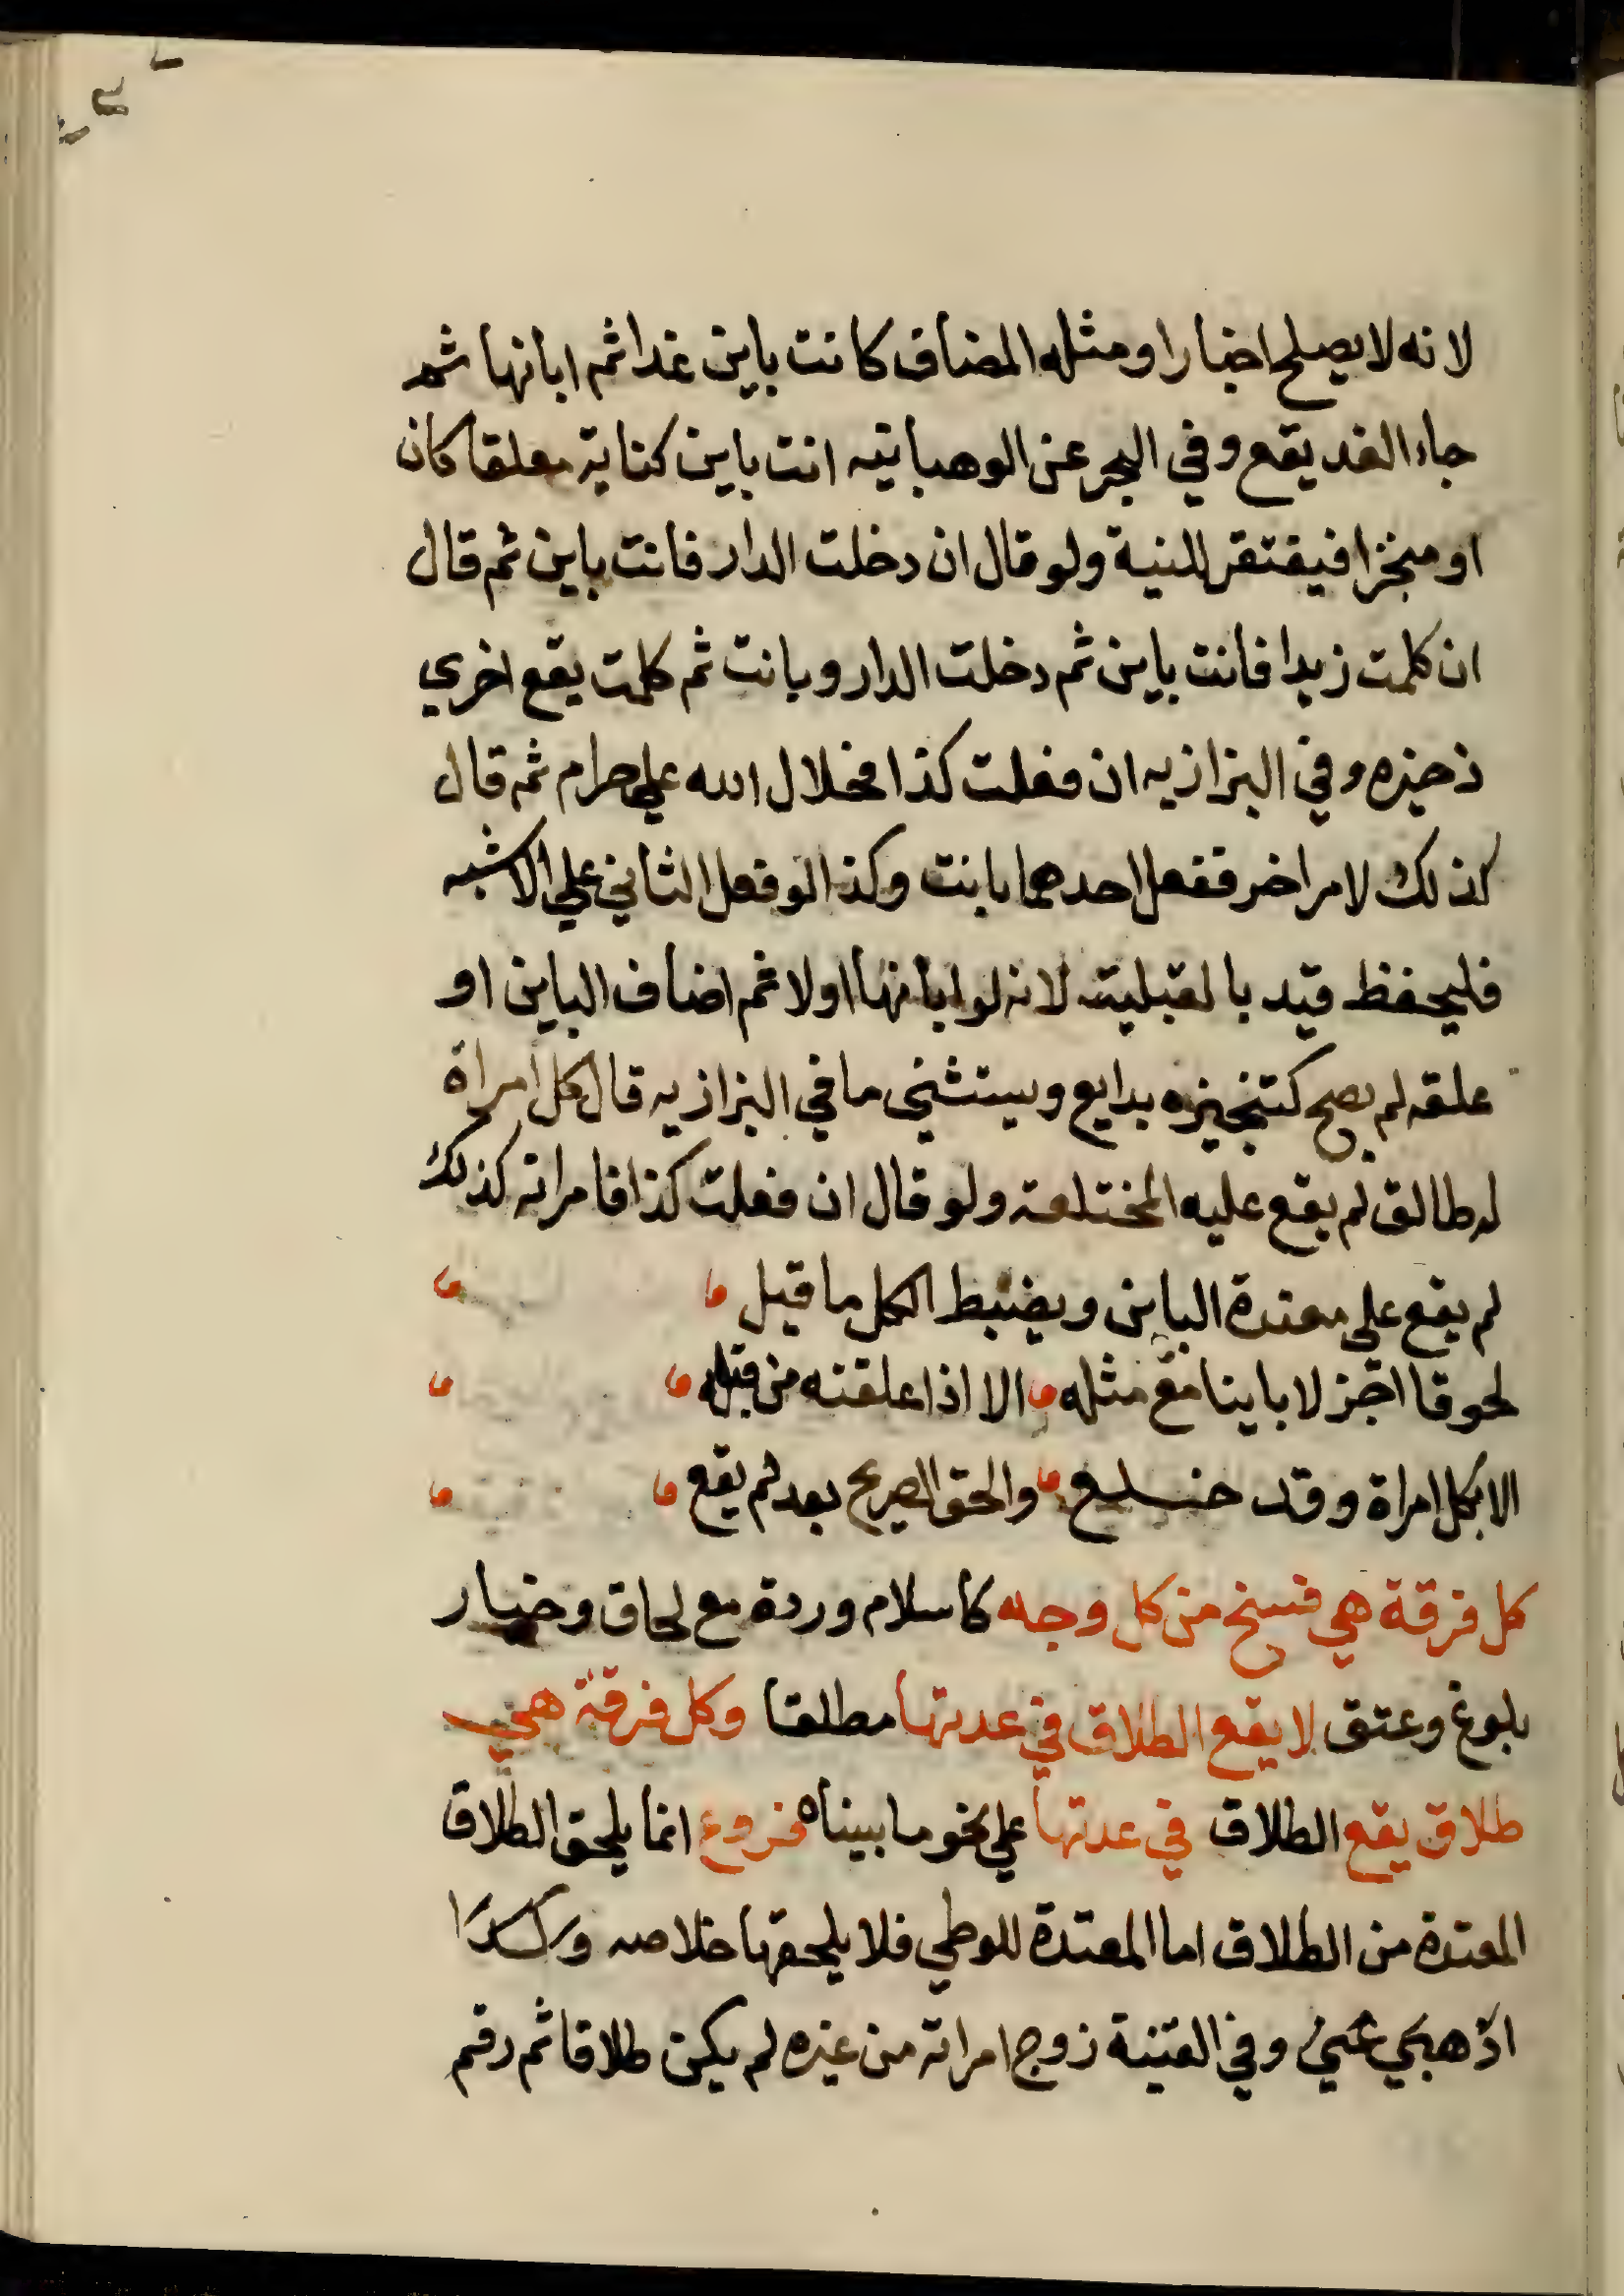 لانه لا يصلح اخبارا ومثله المضاف كانت باين غدا ثم ابانها ثم
جاء الغد يقع وفي البحر عن الوهبانيه انت باين كناية معلقا كان
او منجزا فيفتقر للنية ولو قال ان دخلت الدار فانت باين ثم قال
ان كلمت زيدا فانت باين ثم دخلت الدار وبانت ثم كلمت يقع اخري
ذخيره وفي البزازيه ان فعلت كذا فحلال الله علي حرام ثم قال
كذلك لامر اخر ففعل احدهما بانت وكذا لو فعل الثاني علي الاشبه
فليحفظ قيد بالقبلية لانه لو ابانها اولا ثم اضاف الباين او
علقه لم يصح كتنجيزه بدايع ويستثني ما في البزازيه قال كل امراة
له طالق لم يقع عليه المختلعة ولو قال ان فعلت كذا فامراته كذلك
لم يقع علي معتدة الباين ويضبط الكل ما قيل
لحوقا اجز لا باينا مع مثله الا اذا علقته من قبله
الا بكل امراة وقد خلع والحق الصريح بعد لم يقع
كل فرقة هي فسخ من كل وجه كاسلام وردة مع لحاق وخيار
بلوغ وعتق لا يقع الطلاق في عدتها مطلقا وكل فرقة هي
طلاق يقع الطلاق في عدتها علي نحو ما بيناه فروع انما يلحق الطلاق
المعتدة من الطلاق اما المعتدة للوطي فلا يلحقها خلاصه وكذا
اذهبي عني وفي القنية زوج امراته من غيره لم يكن طلاقا ثم رقم